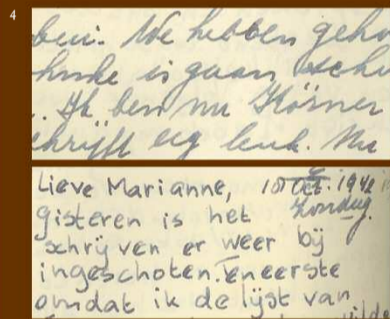 4
ben. We hebben geho
hnke is gaan schu
. Ik ben nu Körner
chrijft erg leuk. Nu
Lieve Marianne, 18 Oct. 1942
Zondag.
gisteren is het
schrijven er weer bij
ingeschoten. Teneerste
omdat ik de lijst van